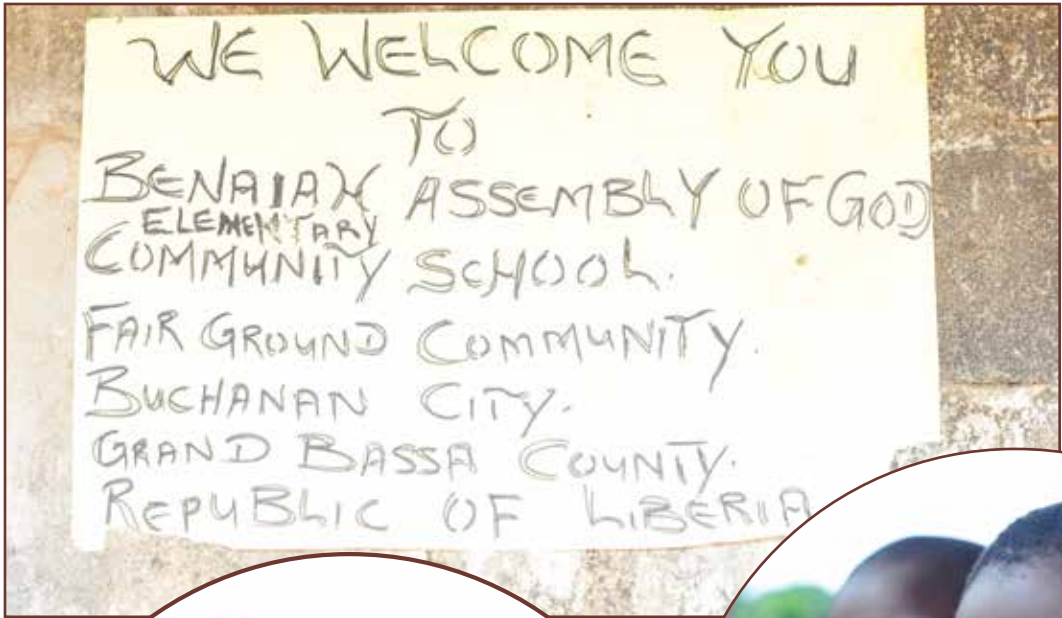 WE WELCOME YOU
TO
BENAIAH ASSEMBLY OF GOD
ELEMENTARY
COMMUNITY SCHOOL.
FAIR GROUND COMMUNITY.
BUCHANAN CITY.
GRAND BASSA COUNTY.
REPUBLIC OF LIBERIA